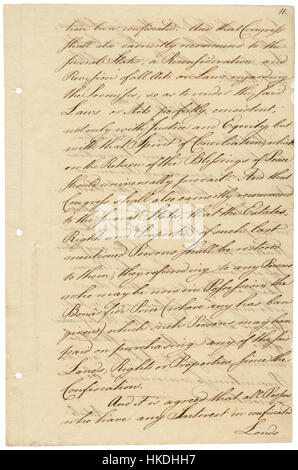 11.
have been confiscated. And that Congress
shall also earnestly recommend to the
several States, a Reconsideration and
Revision of all Acts or Laws regarding
the Premises, so as to render the said
Laws or Acts perfectly consistent,
not only with Justice and Equity, but
with that Spirit of Conciliation, which
on the Return of the Blessings of Peace
should universally prevail. And that
Congress shall also earnestly recommend
to the several States, that the Estates,
Rights and Properties of such last
mentioned Persons shall be restored
to them, they refunding to any Persons
who may be now in Possession, the
Bona fide Price, (where any has been
given,) which such Persons may have
paid on purchasing any of the said
Lands, Rights or Properties, since the
Confiscation.
And it is agreed that all Persons
who have any Interest in confiscated
Lands
alamy
Image ID: HKDHH7
www.alamy.com